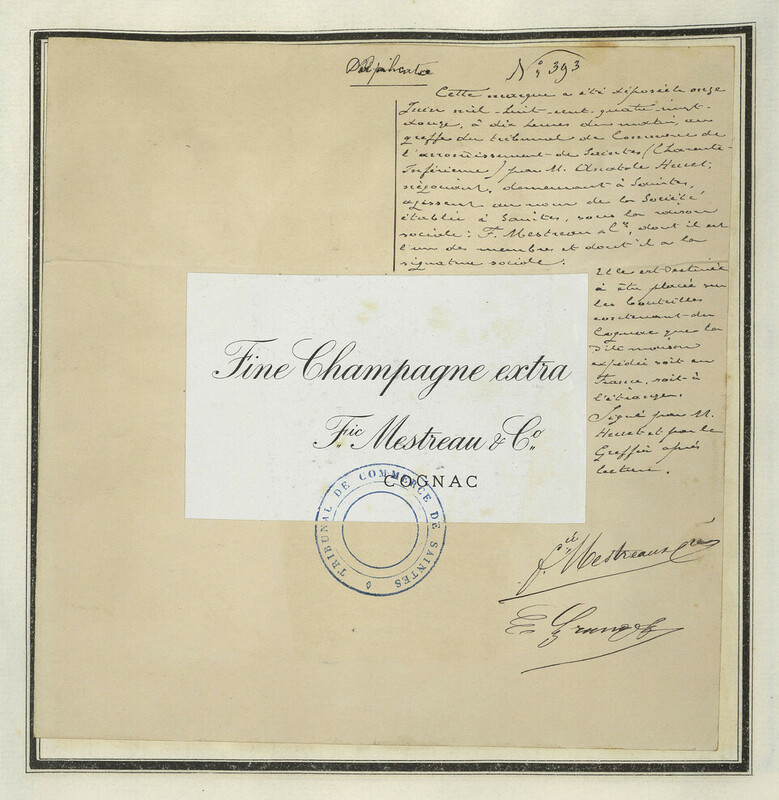 Duplicata
N° 393
Cette marque a été déposée le onze
Juin mil-huit-cent-quatre vingt-
douze, à dix heures du matin, au
greffe du tribunal de Commerce de
l'arrondissement de Saintes (Charente
Inférieure) par M. Anatole Huet,
négociant, demeurant à Saintes,
agissant au nom de la Société
établie à Saintes, sous la raison
sociale: F. Mestreau & Cie, dont il est
l'un des membres et dont il a la
signature sociale.
Elle est destinée
à être placée sur
les bouteilles
contenant du
Cognac que la
dite maison
expédie soit en
France, soit à
l'étranger.
Signé par M.
Huet et par le
Greffier après
lecture.
Fine Champagne extra
Fic Mestreau & Co
COGNAC
TRIBUNAL DE COMMERCE DE SAINTES
Fic Mestreau & Cie